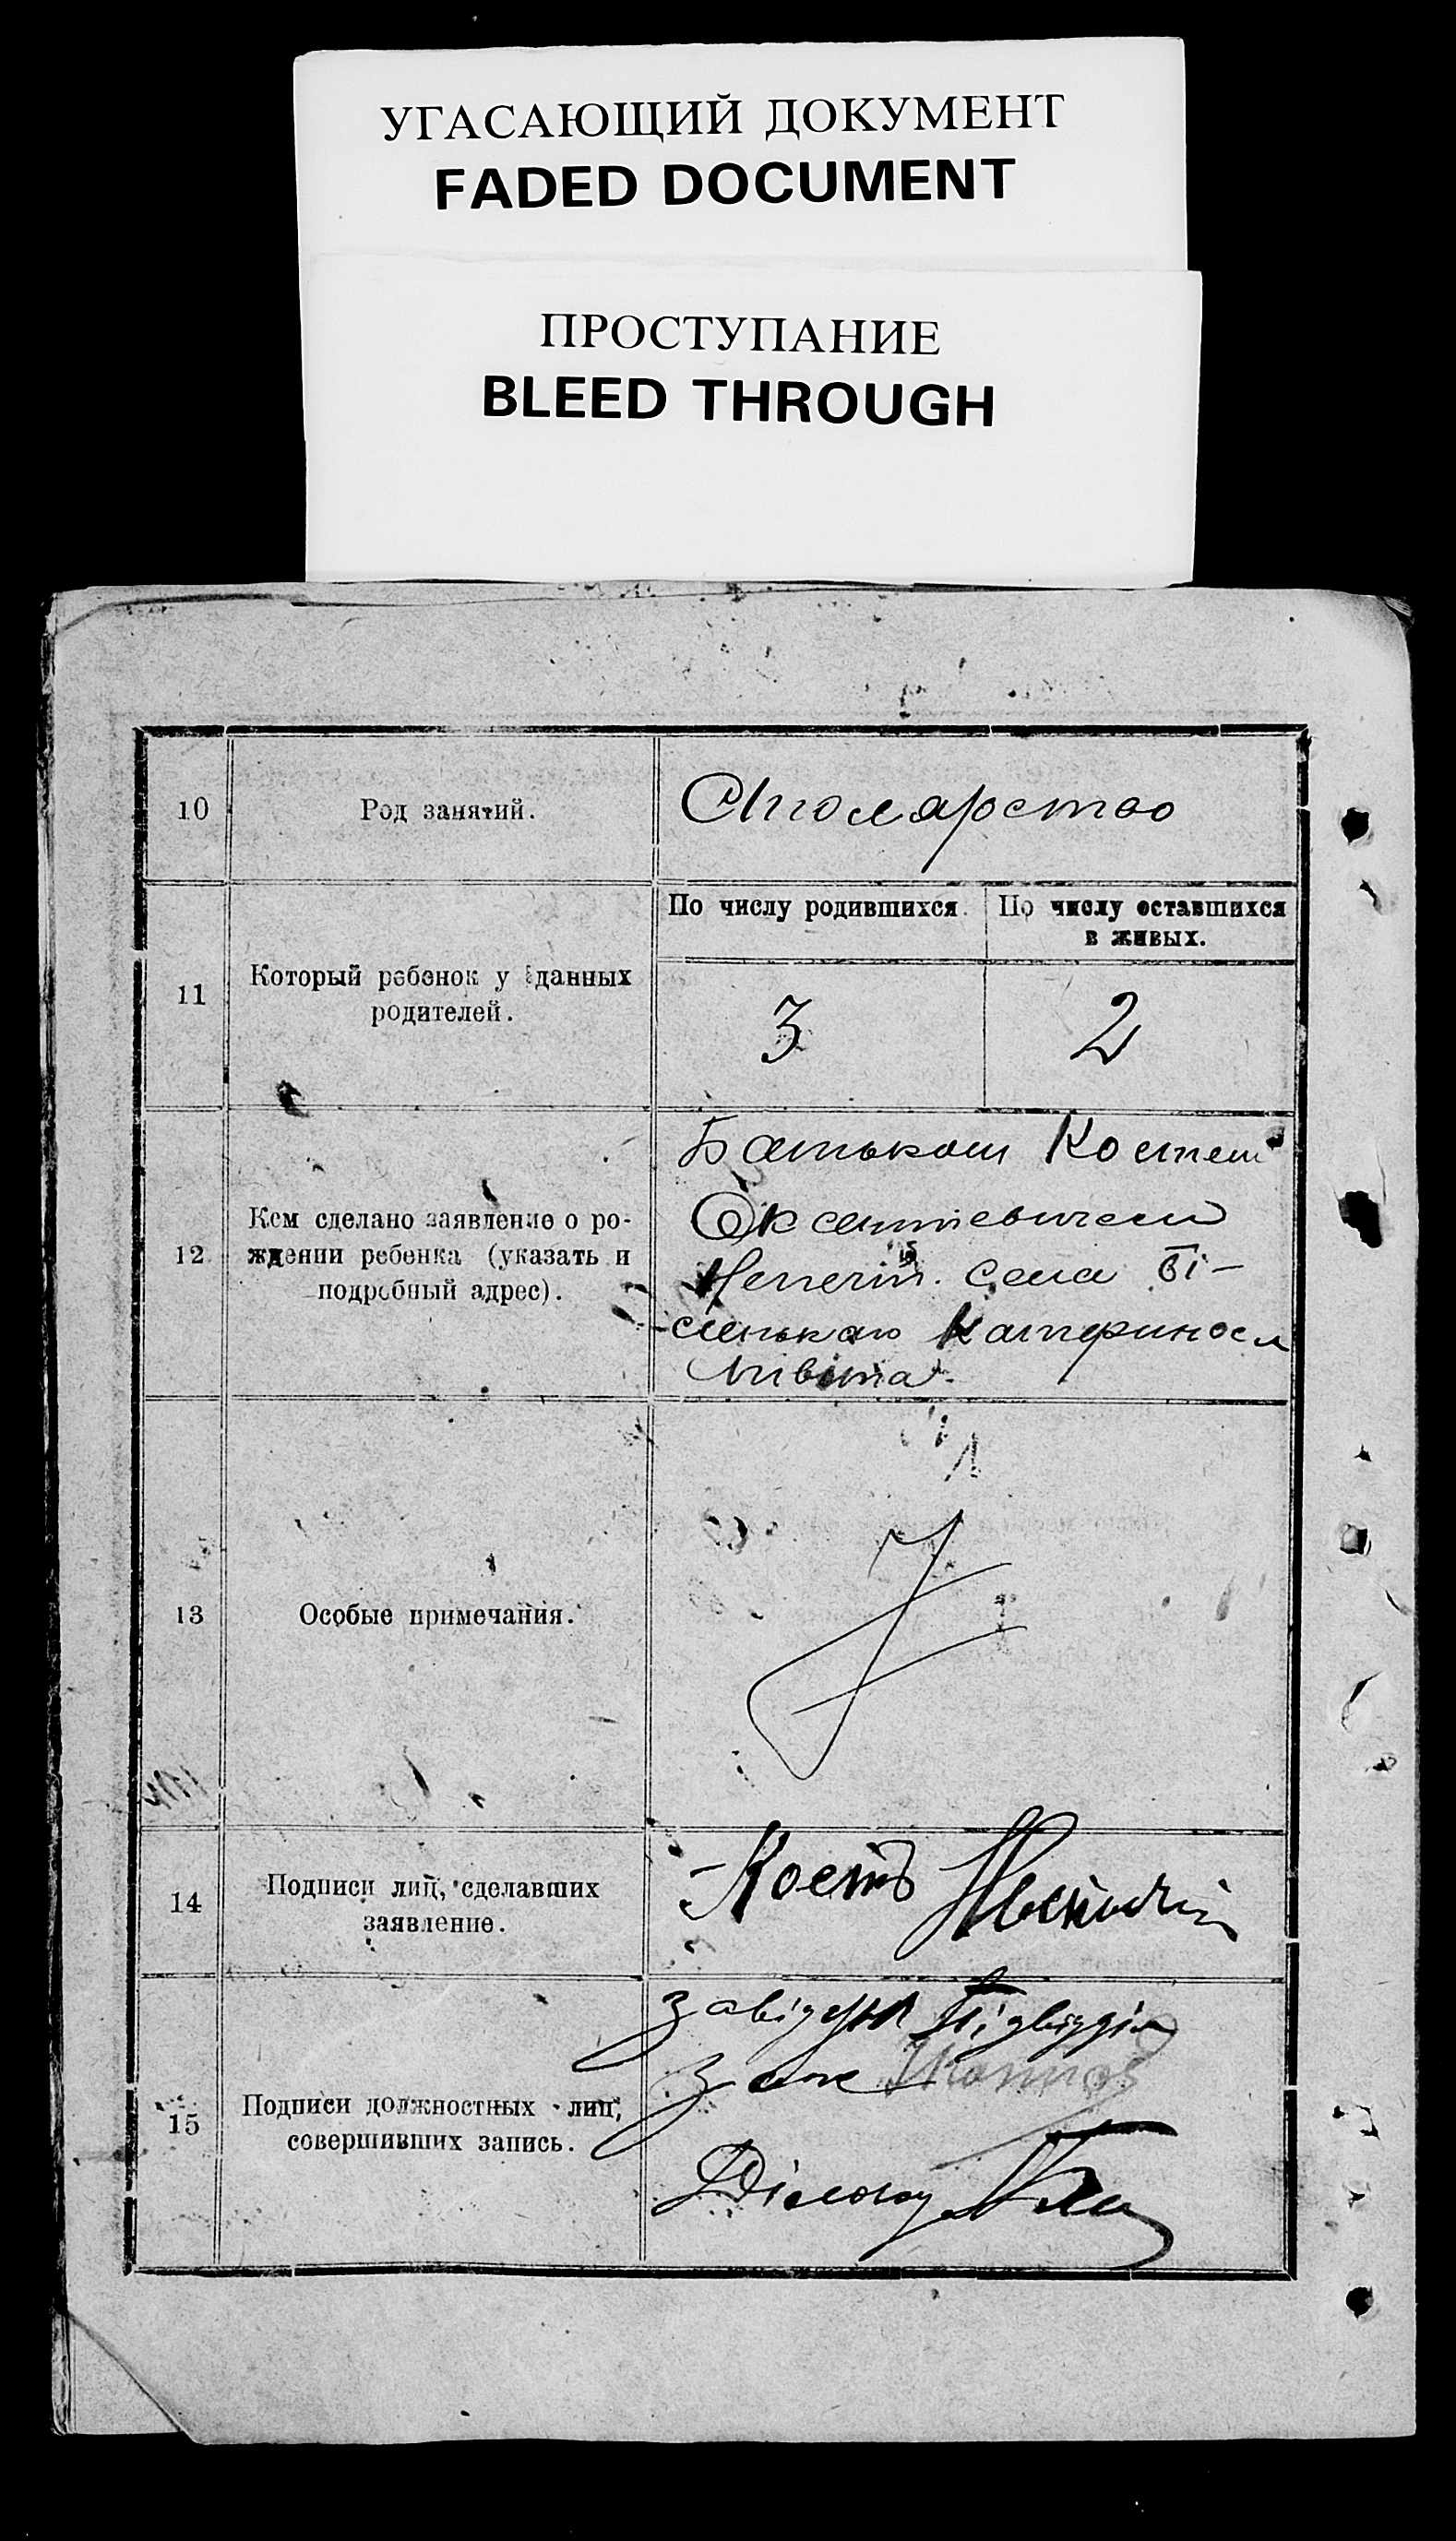 УГАСАЮЩИЙ ДОКУМЕНТ
FADED DOCUMENT
ПРОСТУПАНИЕ
BLEED THROUGH
10
Род занятий.
Столярство
11
Который ребенок у данных
родителей.
По числу родившихся.
По числу оставшихся
в живых.
3
2
12
Кем сделано заявление о ро-
ждении ребенка (указать и
подробный адрес).
Батьком Костем
Оксентіевичем
села Ві-
Катериносл
повіта
13
Особые примечания.
14
Подписи лиц, сделавших
заявление.
Кость
15
Подписи должностных лиц,
совершивших запись.
Завідуюч Підвідділ
Загс
Діловод